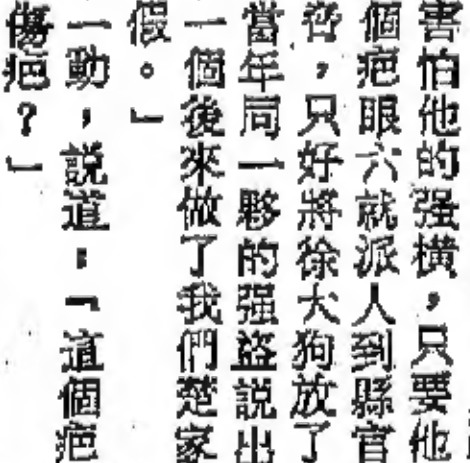 害怕他的强橫，只要他
個疤眼六就派人到縣官
，只好將徐大狗放了
當年同一夥的强盜説出
一個後來做了我們楚家
假。」
一動，説道：「這個疤
傷疤？」